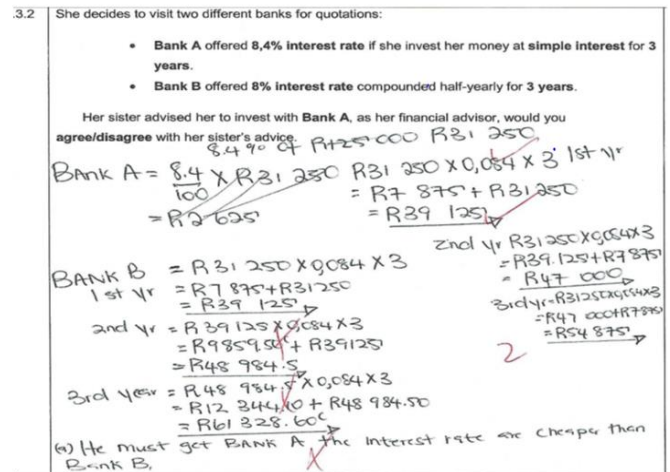 .3.2 She decides to visit two different banks for quotations:
• Bank A offered 8,4% interest rate if she invest her money at simple interest for 3
years.
• Bank B offered 8% interest rate compounded half-yearly for 3 years.
Her sister advised her to invest with Bank A, as her financial advisor, would you
agree/disagree with her sister's advice.
8.4% of R31 250
BANK A = 8.4/100 × R31 250
= R2 625
R31 250 × 0,084 × 3 1st yr
= R7 875 + R31 250
= R39 125
2nd yr R31 250 × 0,084 × 3
= R39.125 + R7 875
= R47 000
3rd yr = R31250×0,084×3
= R47 000 + R7875
= R54 875
2
BANK B = R31 250 × 0,084 × 3
1st yr = R7 875 + R31250
= R39 125
2nd yr = R39125 × 0,084 × 3
+ R39125
= R48 984.5
3rd year = R48 984,5 × 0,084 × 3
+ R48 984.50
= R61 328.60
(a) He must get BANK A the interest rate are cheaper than
Bank B,